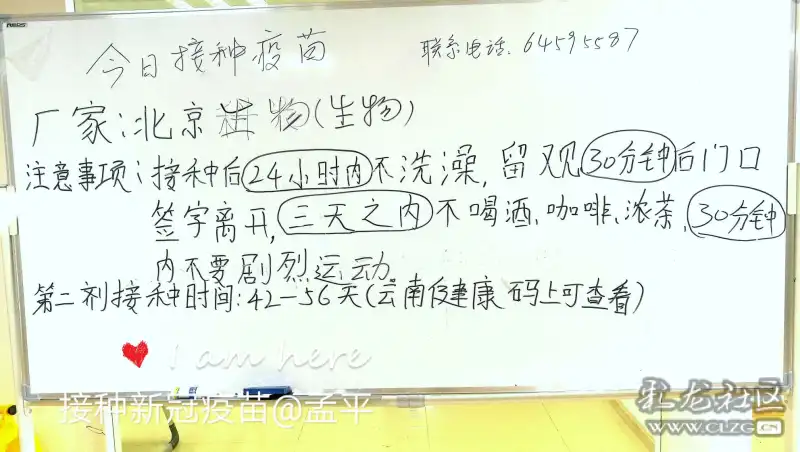 今日接种疫苗
联系电话:64595587
厂家:北京 物(生物)
注意事项:接种后24小时内不洗澡,留观30分钟后门口
签字离开,三天之内不喝酒、咖啡、浓茶、30分钟
内不要剧烈运动。
第二剂接种时间:42-56天(云南健康码上可查看)
I am here
接种新冠疫苗@孟平
乳龙社区
WWW.CLZG.CN